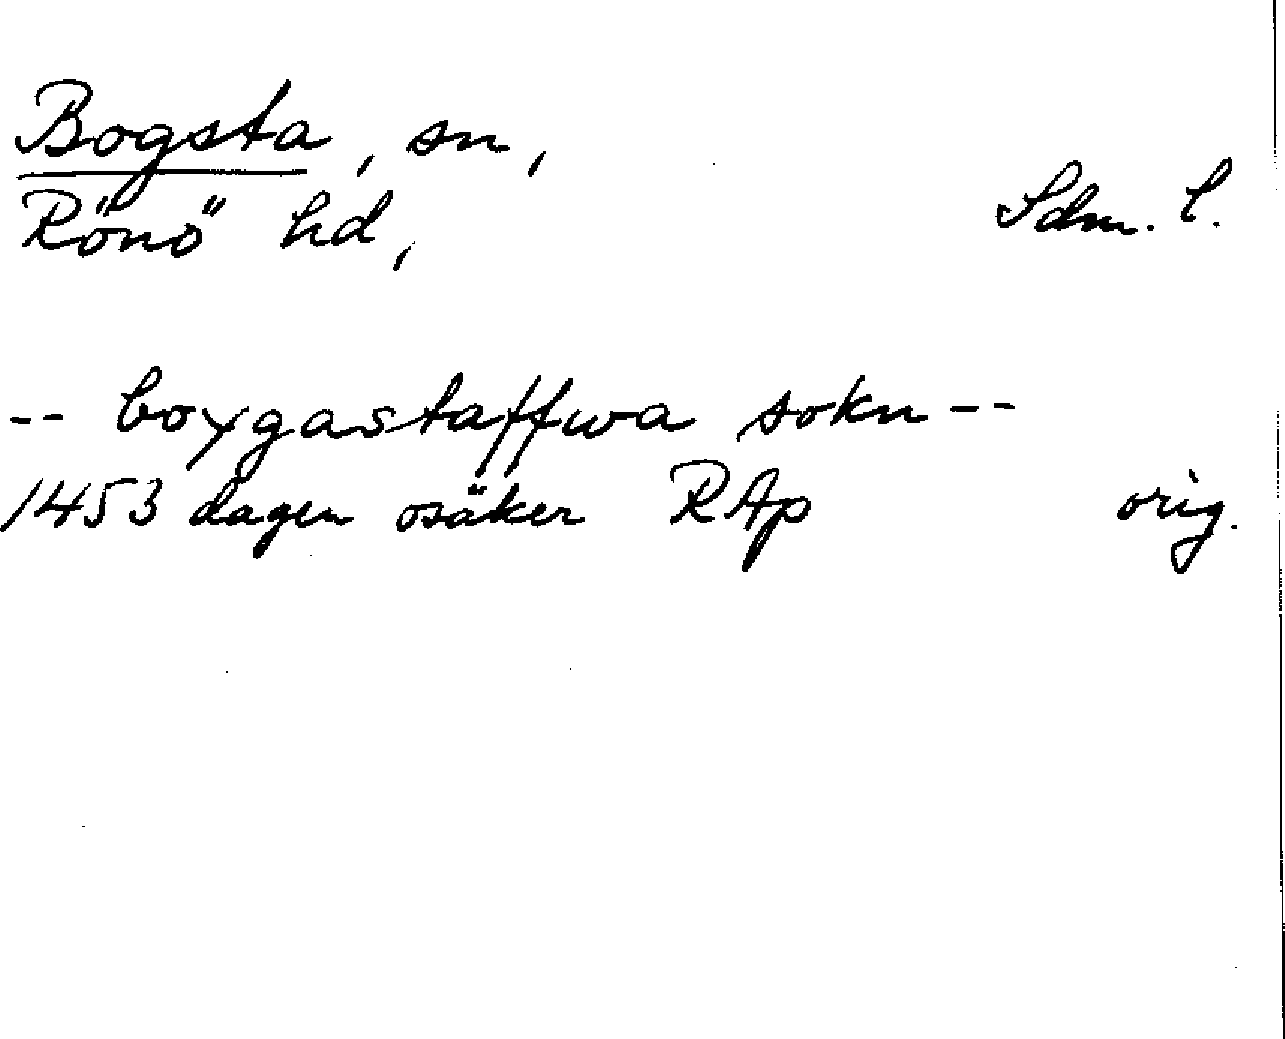 Bogsta, sn,
Rönö hd,
Sdm. l.
-- boxgastaffwa sokn --
1453 dagen osäker RAp orig.